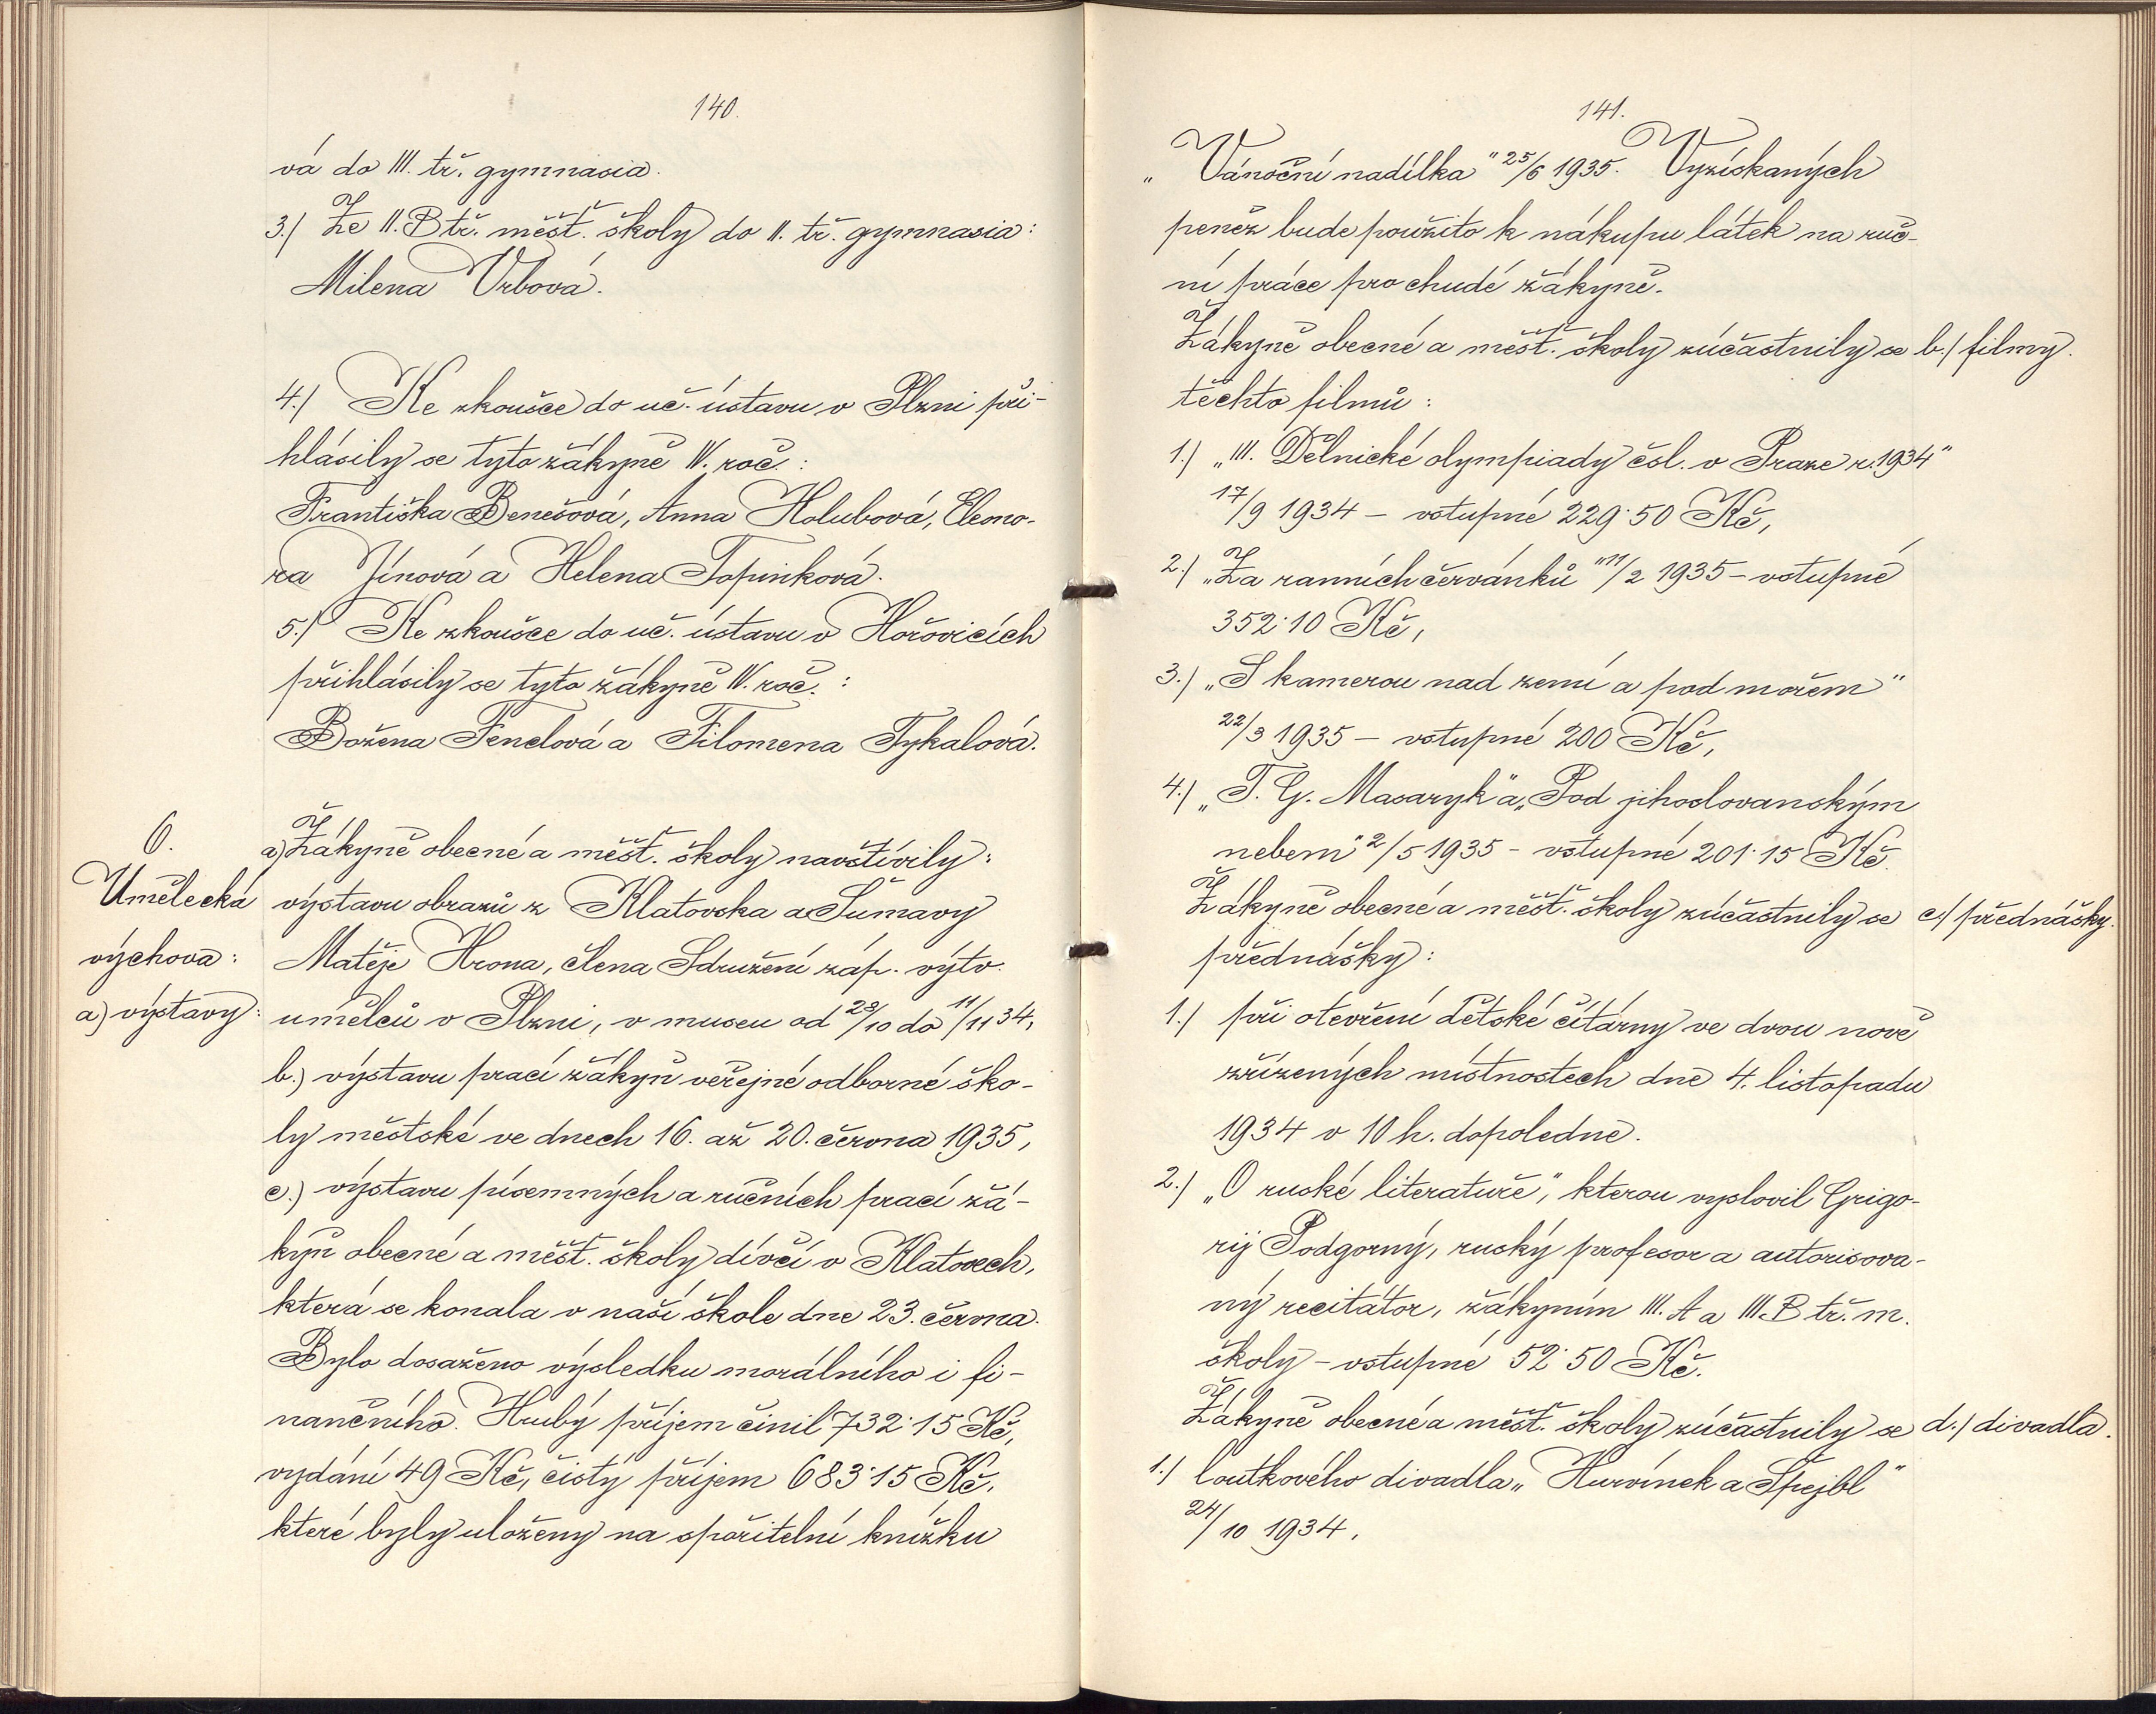 140.
vá do III. tř. gymnasia.
3.) Ze II. B tř. měšť. školy do II. tř. gymnasia:
Milena Vrbová.
4.) Ke zkoušce do uč. ústavu v Plzni při-
hlásily se tyto žákyně IV. roč.:
Františka Benešová, Anna Holubová, Eleono-
ra Jínová a Helena Topinková.
5.) Ke zkoušce do uč. ústavu v Hořovicích
přihlásily se tyto žákyně IV. roč.:
Božena Fenclová a Filomena Tykalová.
6.
Umělecká
výchova:
a) výstavy:
a) Žákyně obecné a měšť. školy navštívily:
výstavu obrazů z Klatovska a Šumavy
Matěje Hrona, člena Sdružení záp. výtv.
umělců v Plzni, v museu od 28/10 do 11/11 34,
b.) výstavu prací žákyň veřejné odborné ško-
ly městské ve dnech 16. až 20. června 1935,
c.) výstavu písemných a ručních prací žá-
kyň obecné a měšť. školy dívčí v Klatovech,
která se konala v naší škole dne 23. června.
Bylo dosaženo výsledku morálního i fi-
nančního. Hrubý příjem činil 732·15 Kč,
vydání 49 Kč, čistý příjem 683·15 Kč,
které byly uloženy na spořitelní knížku
141.
„Vánoční nadílka" 25/6 1935. Vyzískaných
peněz bude použito k nákupu látek na ruč-
ní práce pro chudé žákyně.
Žákyně obecné a měšť. školy zúčastnily se b.) filmy.
těchto filmů:
1.) „III. Dělnické olympiady čsl. v Praze r. 1934"
17/9 1934 – vstupné 229·50 Kč,
2.) „Za ranních červánků" 11/2 1935 – vstupné
352·10 Kč,
3.) „S kamerou nad zemí a pod mořem"
22/3 1935 – vstupné 200 Kč,
4.) „T. G. Masaryk" a „Pod jihoslovanským
nebem" 2/5 1935 – vstupné 201·15 Kč.
Žákyně obecné a měšť. školy zúčastnily se c.) přednášky.
přednášky:
1.) při otevření dětské čítárny ve dvou nově
zřízených místnostech dne 4. listopadu
1934 v 10 h. dopoledne.
2.) „O ruské literatuře", kterou vyslovil Grigo-
rij Podgorný, ruský profesor a autorisova-
ný recitátor, žákyním III. A a III. B tř. m.
školy – vstupné 52·50 Kč.
Žákyně obecné a měšť. školy zúčastnily se d.) divadla.
1.) loutkového divadla „Hurvínek a Špejbl"
24/10 1934,